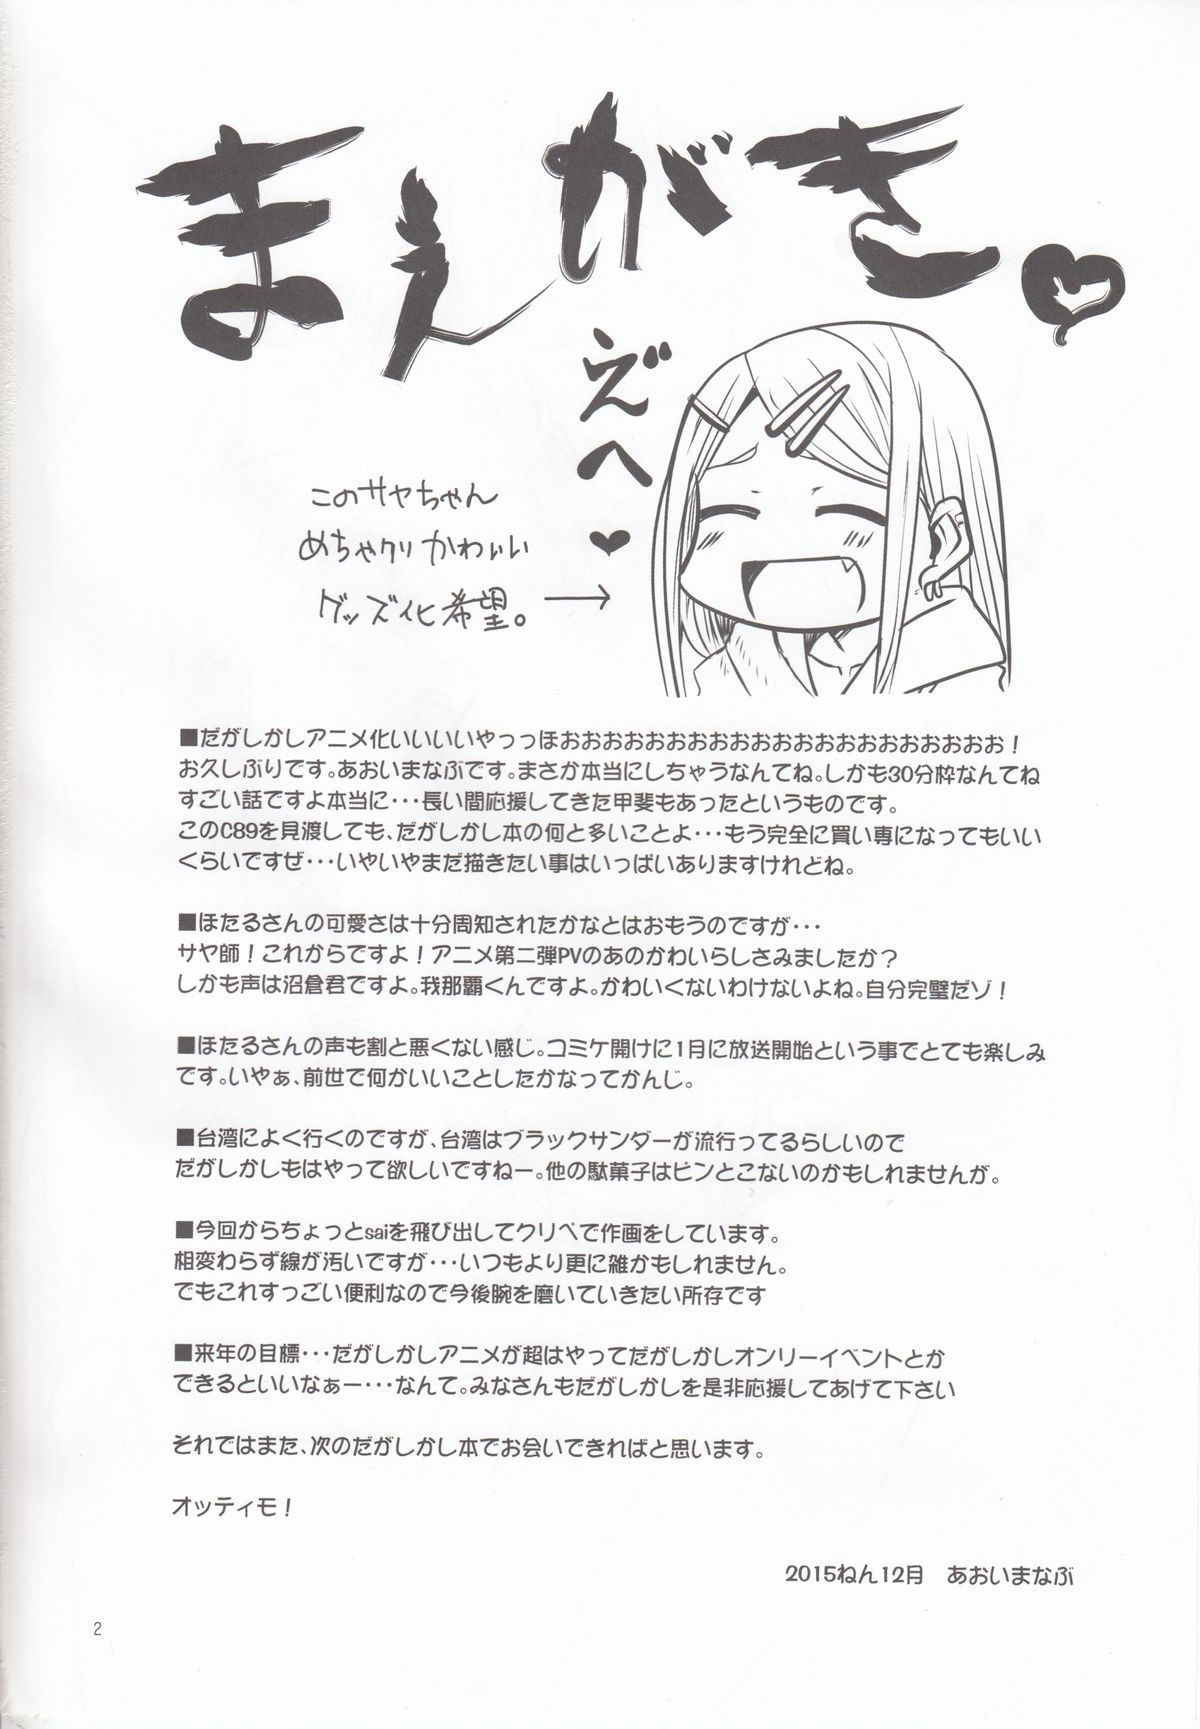 まえがき♥
えへ♥
このサヤちゃん
めちゃクリかわいい
グッズ化希望。→
■だがしかしアニメ化いいいいやっっほおおおおおおおおおおおおおおおおおおおおお！
お久しぶりです。あおいまなぶです。まさか本当にしちゃうなんてね。しかも30分枠なんてね
すごい話ですよ本当に・・・長い間応援してきた甲斐もあったというものです。
このC89を見渡しても、だがしかし本の何と多いことよ・・・もう完全に買い専になってもいい
くらいですぜ・・・いやいやまだ描きたい事はいっぱいありますけれどね。
■ほたるさんの可愛さは十分周知されたかなとはおもうのですが・・・
サヤ師！これからですよ！アニメ第二弾PVのあのかわいらしさみましたか？
しかも声は沼倉君ですよ。我那覇くんですよ。かわいくないわけないよね。自分完璧だゾ！
■ほたるさんの声も割と悪くない感じ。コミケ開けに1月に放送開始という事でとても楽しみ
です。いやぁ、前世で何かいいことしたかなってかんじ。
■台湾によく行くのですが、台湾はブラックサンダーが流行ってるらしいので
だがしかしもはやって欲しいですねー。他の駄菓子はピンとこないのかもしれませんが。
■今回からちょっとsaiを飛び出してクリペで作画をしています。
相変わらず線が汚いですが・・・いつもより更に雑かもしれません。
でもこれすっごい便利なので今後腕を磨いていきたい所存です
■来年の目標・・・だがしかしアニメが超はやってだがしかしオンリーイベントとか
できるといいなぁー・・・なんて。みなさんもだがしかしを是非応援してあげて下さい
それではまた、次のだがしかし本でお会いできればと思います。
オッティモ！
2015ねん12月　あおいまなぶ
2